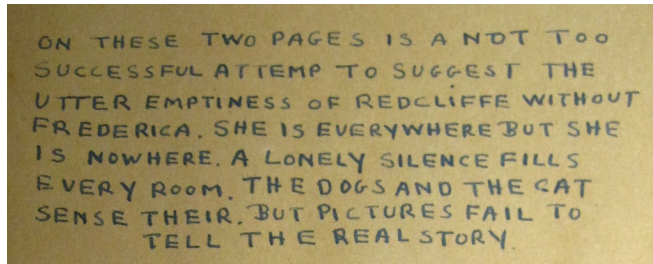 ON THESE TWO PAGES IS A NOT TOO
SUCCESSFUL ATTEMP TO SUGGEST THE
UTTER EMPTINESS OF REDCLIFFE WITHOUT
FREDERICA. SHE IS EVERYWHERE BUT SHE
IS NOWHERE. A LONELY SILENCE FILLS
EVERY ROOM. THE DOGS AND THE CAT
SENSE THEIR. BUT PICTURES FAIL TO
TELL THE REAL STORY.